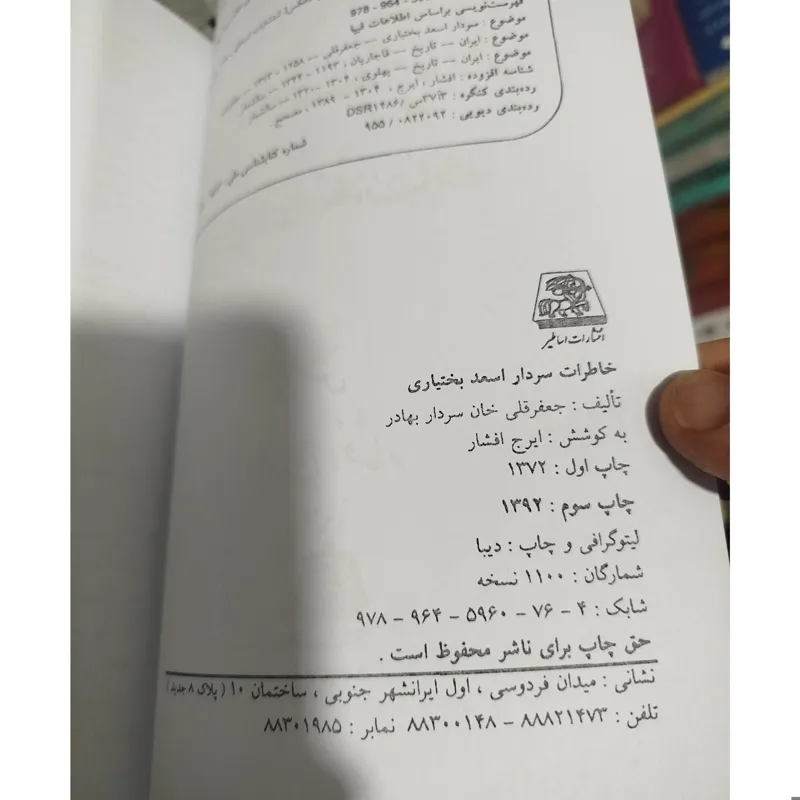 978 - 964
فهرست‌نویسی براساس اطلاعات فیپا
موضوع : سردار اسعد بختیاری — جعفرقلی
موضوع : ایران — تاریخ — قاجاریان، ۱۱۹۳ - ۱۳۴۴
موضوع : ایران — تاریخ — پهلوی، ۱۳۰۴ - ۱۳۲۰
شناسه افزوده : افشار، ایرج، ۱۳۰۴ - ۱۳۸۹، مصحح.
رده‌بندی کنگره : DSR۱۴۸۶/س۳۷آ۳
رده‌بندی دیویی : ۹۵۵/۰۸۲۲۰۹۲
شماره کتابشناسی ملی
انتشارات اساطیر
خاطرات سردار اسعد بختیاری
تألیف : جعفرقلی خان سردار بهادر
به کوشش : ایرج افشار
چاپ اول : ۱۳۷۲
چاپ سوم : ۱۳۹۲
لیتوگرافی و چاپ : دیبا
شمارگان : ۱۱۰۰ نسخه
شابک : ۴ - ۷۶ - ۵۹۶۰ - ۹۶۴ - ۹۷۸
حق چاپ برای ناشر محفوظ است .
نشانی : میدان فردوسی ، اول ایرانشهر جنوبی ، ساختمان ۱۰ ( پلاک ۸ جدید )
تلفن : ۸۸۸۲۱۴۷۳ - ۸۸۳۰۰۱۴۸ نمابر : ۸۸۳۰۱۹۸۵